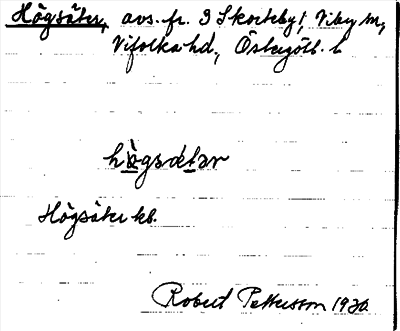 Högsäter, avs. fr. 3 Skorteby, Viby sn,
Vifolka hd, Östergötl. l.
högsätar
Högsäter kb.
Robert Pettersson 1930